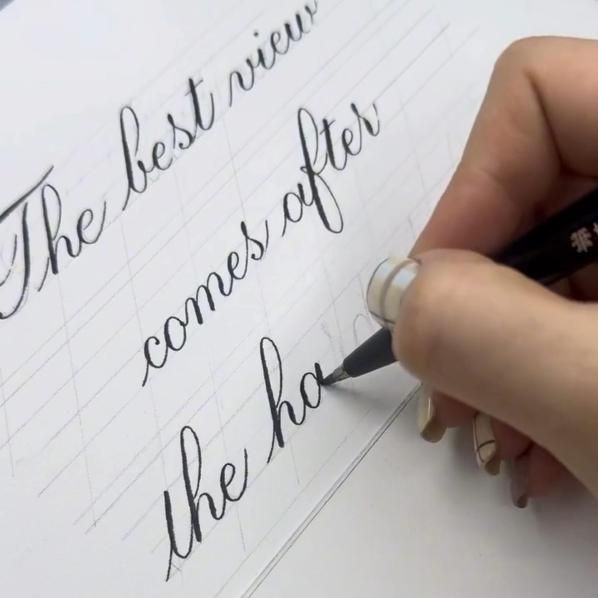 The best view
comes after
the ha